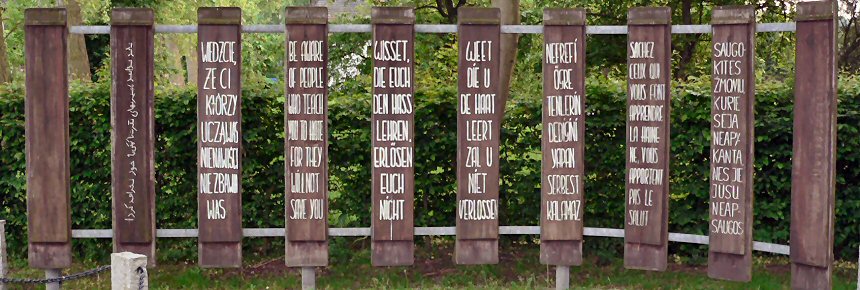 WIEDZCIE,
ŻE CI
KTÓRZY
UCZĄ WAS
NIENAWIŚCI
NIE ZBAWIĄ
WAS
BE AWARE
OF PEOPLE
WHO TEACH
YOU TO HATE
FOR THEY
WILL NOT
SAVE YOU
WISSET,
DIE EUCH
DEN HASS
LEHREN,
ERLÖSEN
EUCH
NICHT
WEET
DIE U
DE HAAT
LEERT
ZAL U
NIET
VERLOSSEN
NEFRETİ
ÖĞRE
TENLERİN
DEDİĞİNİ
YAPAN
SERBEST
KALAMAZ
SACHEZ
CEUX QUI
VOUS FONT
APPRENDRE
LA HAINE
NE VOUS
APPORTENT
PAS LE
SALUT
SAUGO
KITES
ŽMONIŲ,
KURIE
SĖJA
NEAPY
KANTA
NES JIE
JŪSŲ
NEAP-
SAUGOS